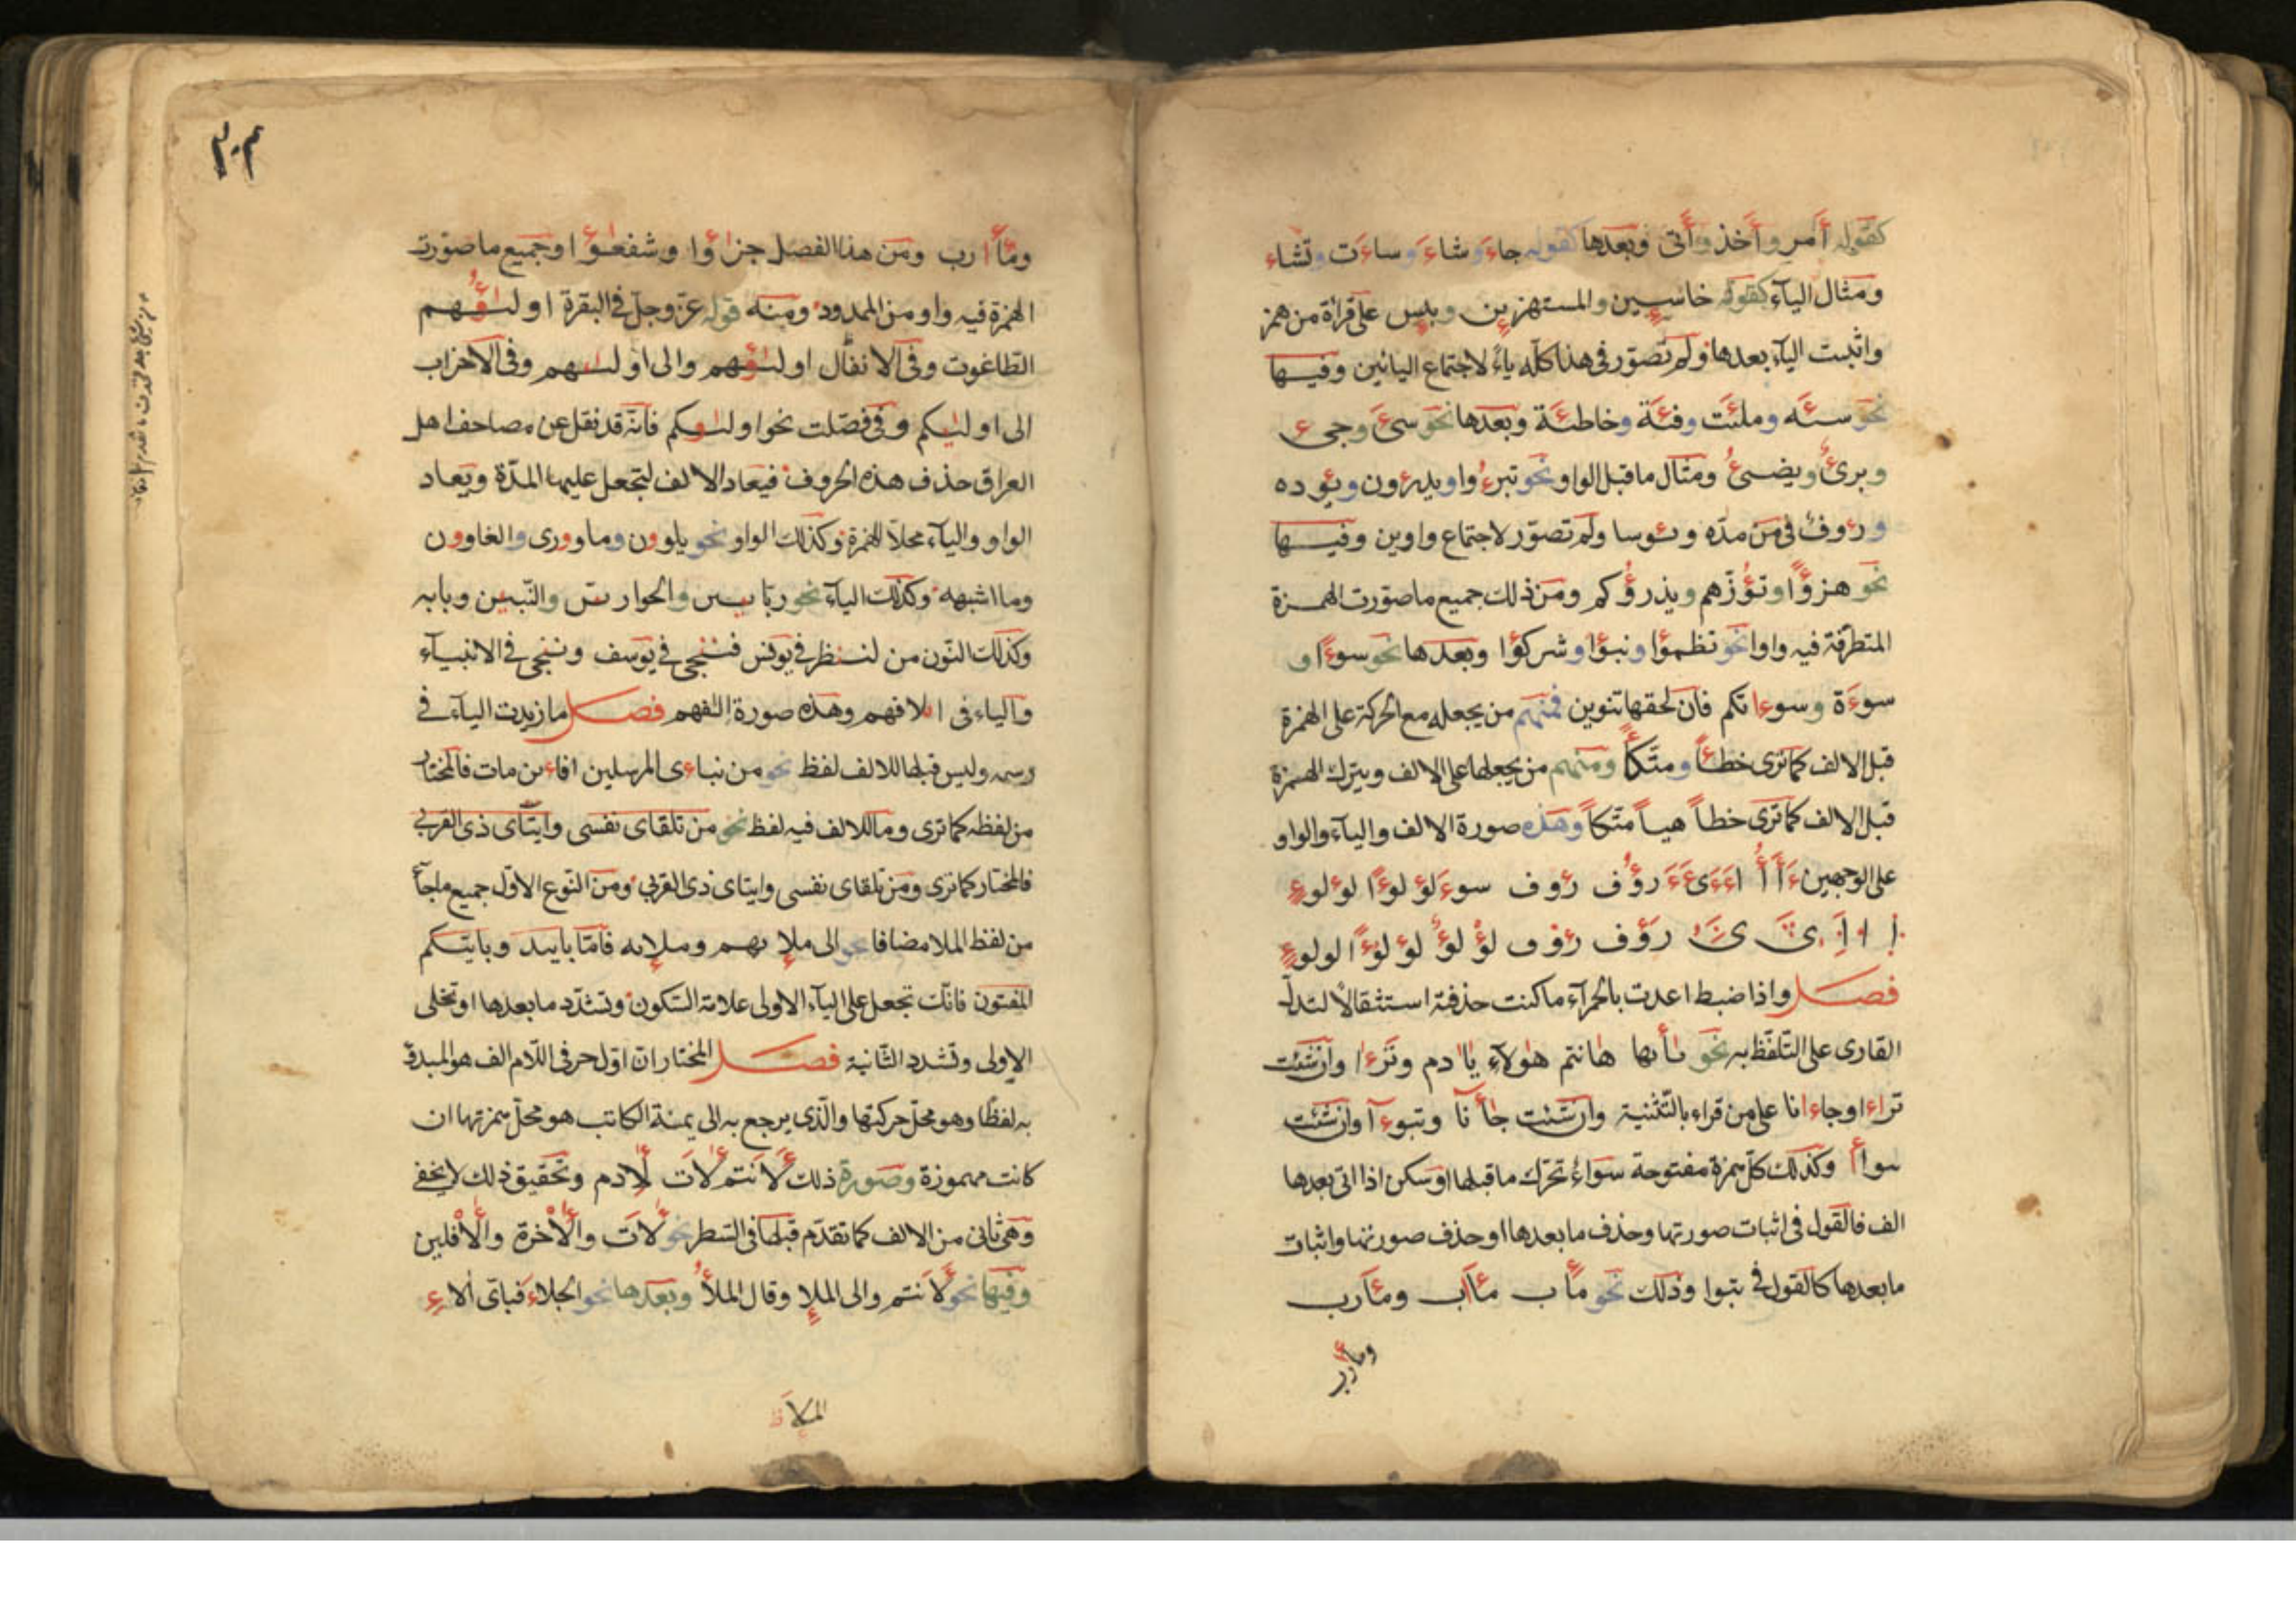 كقوله أمر وأخذ وأتى وبعدها كقوله جاءَ وشاءَ وساءَت وتشاء
ومثال الياء كقوله خاسـٕين والمستهزءين وبئس على قراة من همز
واثبت الياء بعدها ولم تصوّر فى هذا كلّه ياءً لاجتماع اليائين وفيها
نحو سئه وملئت وفئة وخاطئة وبعدها نحو سىءَ وجىء
وبرىءٌ ويضىءُ ومثال ما قبل الواو نحو تبرءُوا ويدرءون ويؤده
ورءوف فى من مدّه ويئوسا ولم تصوّر لاجتماع واوين وفيها
نحو هزؤًا وتؤزّهم ويذرؤكم ومن ذلك جميع ما صوّرت الهمزة
المتطرّفة فيه واوا نحو تظمؤا ونبؤا وشركؤا وبعدها نحو سوءًا و
سوءَة وسوءاتكم فان لحقها تنوين فمنهم من يجعله مع الحركة على الهمزة
قبل الالف كما ترى خطـًٔا ومتكـًٔا ومنهم من يجعلها على الالف ويترك الهمزة
قبل الالف كما ترى خطاً هيـاً متّكاً وهذه صورة الالف والياء والواو
على الوجهين رؤُف رءوف سوءَ لؤلؤًا لؤلوءٍ
رؤف رءوف لؤلؤ لؤلؤًا لولوءٍ
فصل واذا ضبط اعدت بالحمرآء ما كنت حذفته استثقالًا لتدلّ
القارى على التلفّظ به نحو يـٰأيها هٰانتم هٰولآءِ يٰاادم وترءا وان شئت
تراءا وجاءانا على من قراء بالتّثنية وان شئت جاأنا وتبوءآ وان شئت
سواأ وكذلك كلّ همزة مفتوحة سواءٌ تحرّك ما قبلها او سكن اذا اتى بعدها
الف فالقول فى اثبات صورتها وحذف ما بعدها او حذف صورتها واثبات
ما بعدها كالقول فى تبوا وذلك نحو مأب مـٔاب ومـٔارب
ومأرب
٢٠٣
ومأارب ومن هذا الفصل جزاؤا وشفعـٰؤا وجميع ما صوّرت
الهمزة فيه واو من الممدود ومنه قوله عزّوجلّ فى البقرة اوليـٰؤُهم
الطّاغوت وفى الانفال اوليـٰؤهم والى اوليـٰئهم وفى الاحزاب
الى اوليٰئكم وفى فصّلت نحو اوليـٰؤكم فانّه قد نقل عن مصاحف اهل
العراق حذف هذه الحروف فيعاد الالف لتجعل عليها المدّة ويعاد
الواو والياء محلا للهمزة وكذلك الواو نحو يلوون وما وورى والغاوون
وما اشبهه وكذلك الياء نحو ربّانيـين والحواريـن والنّبيين وبابه
وكذلك النّون من لننظر فى يونس فننجى فى يوسف وننجى فى الانبيآء
والياء فى ايلافهم وهذه صورة الٰفهم فصل ما زيدت الياء فى
رسمه وليس قبلها للالف لفظ نحو من نباءى المرسلين افاءين مات فالمختار
من لفظه كما ترى وما للالف فيه لفظ نحو من تلقاى نفسى وايتاى ذى القربى
فالمختار كما ترى ومن تلقاى نفسى وايتاى ذى القربى ومن النّوع الاوّل جميع ماجآء
من لفظ الملا مضافا نحو الى ملإيهم وملإيه فامّا باييد وباييّكم
المفتون فانّك تجعل على الياء الاولى علامة السّكون وتشدّد ما بعدها او تخلى
الاولى وتشدد الثّانية فصل المختار انّ اوّل حرفى اللّام الف هو المبدؤ
به لفظًا وهو محلّ حركتها والّذى يرجع به الى يمنة الكاتب هو محلّ همزتها ان
كانت مهموزة وصورة ذلك لَأنتم لأت لأدم وتحقيق ذلك لا يخفى
وهى ثانى من الالف كما تقدّم قبلها فى السّطر نحو لأت والأخرة والأفلين
وفيها نحو لأنتم والى الملإ وقال الملأُ وبعدها نحو الجلاءَ فباىّ الاءِ
الملأ